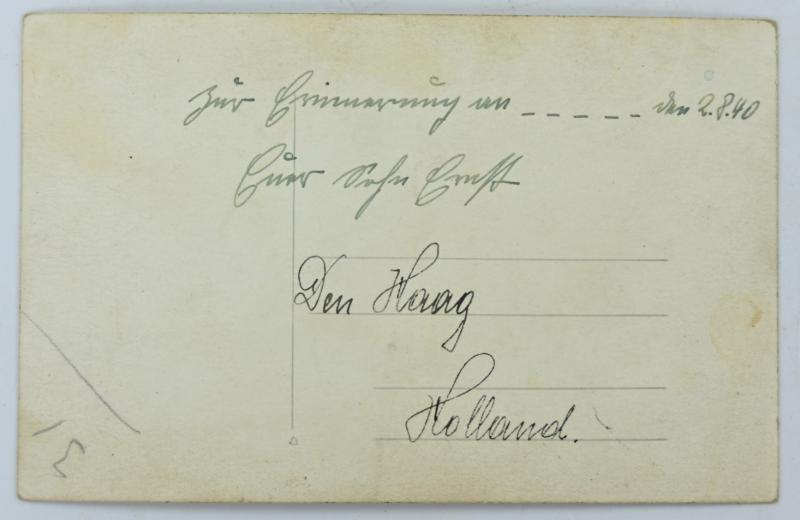 Zur Erinnerung an _ _ _ _ _ den 2.8.40
Euer Sohn Ernst
Den Haag
Holland.